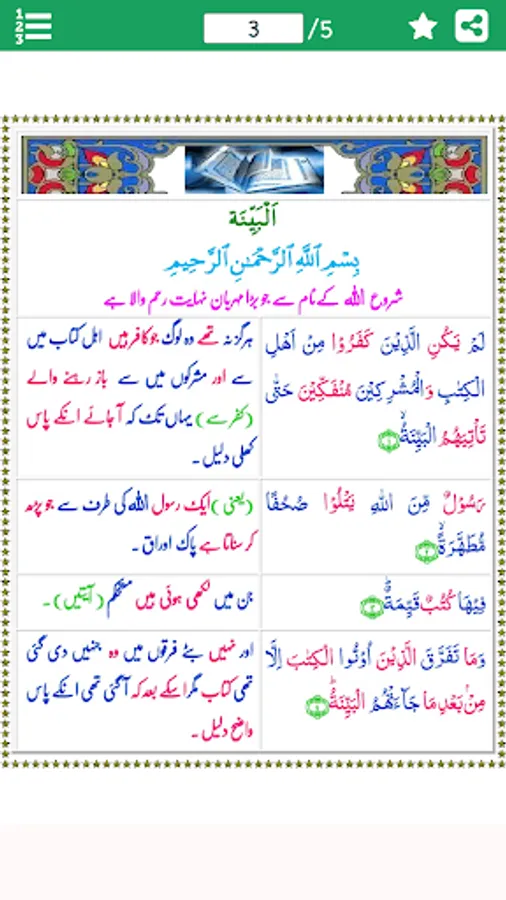 1
2
3
3
/5
اَلْبَيِّنَة
بِسْمِ ٱللَّهِ ٱلرَّحْمَـٰنِ ٱلرَّحِيمِ
شروع اللہ کے نام سے جو بڑا مہربان نہایت رحم والا ہے
لَمْ يَكُنِ الَّذِيْنَ كَفَرُوْا مِنْ اَهْلِ
الْكِتٰبِ وَالْمُشْرِكِيْنَ مُنْفَكِّيْنَ حَتّٰى
تَاْتِيَهُمُ الْبَيِّنَةُۙ ﴿١﴾
ہرگز نہ تھے وہ لوگ جو کافر ہیں اہل کتاب میں
سے اور مشرکوں میں سے باز رہنے والے
(کفر سے) یہاں تک کہ آ جائے انکے پاس
کھلی دلیل۔
رَسُوْلٌ مِّنَ اللّٰهِ يَتْلُوْا صُحُفًا
مُّطَهَّرَةًۙ ﴿٢﴾
(یعنی) ایک رسول اللہ کی طرف سے جو پڑھ
کر سناتا ہے پاک اوراق۔
فِيْهَا كُتُبٌ قَيِّمَةٌؕ ﴿٣﴾
جن میں لکھی ہوئی ہیں مستحکم (آیتیں)۔
وَمَا تَفَرَّقَ الَّذِيْنَ اُوْتُوا الْكِتٰبَ اِلَّا
مِنْۢ بَعْدِ مَا جَآءَتْهُمُ الْبَيِّنَةُؕ ﴿٤﴾
اور نہیں بٹے فرقوں میں وہ جنہیں دی گئی
تھی کتاب مگر اسکے بعد کہ آ گئی تھی انکے پاس
واضح دلیل۔